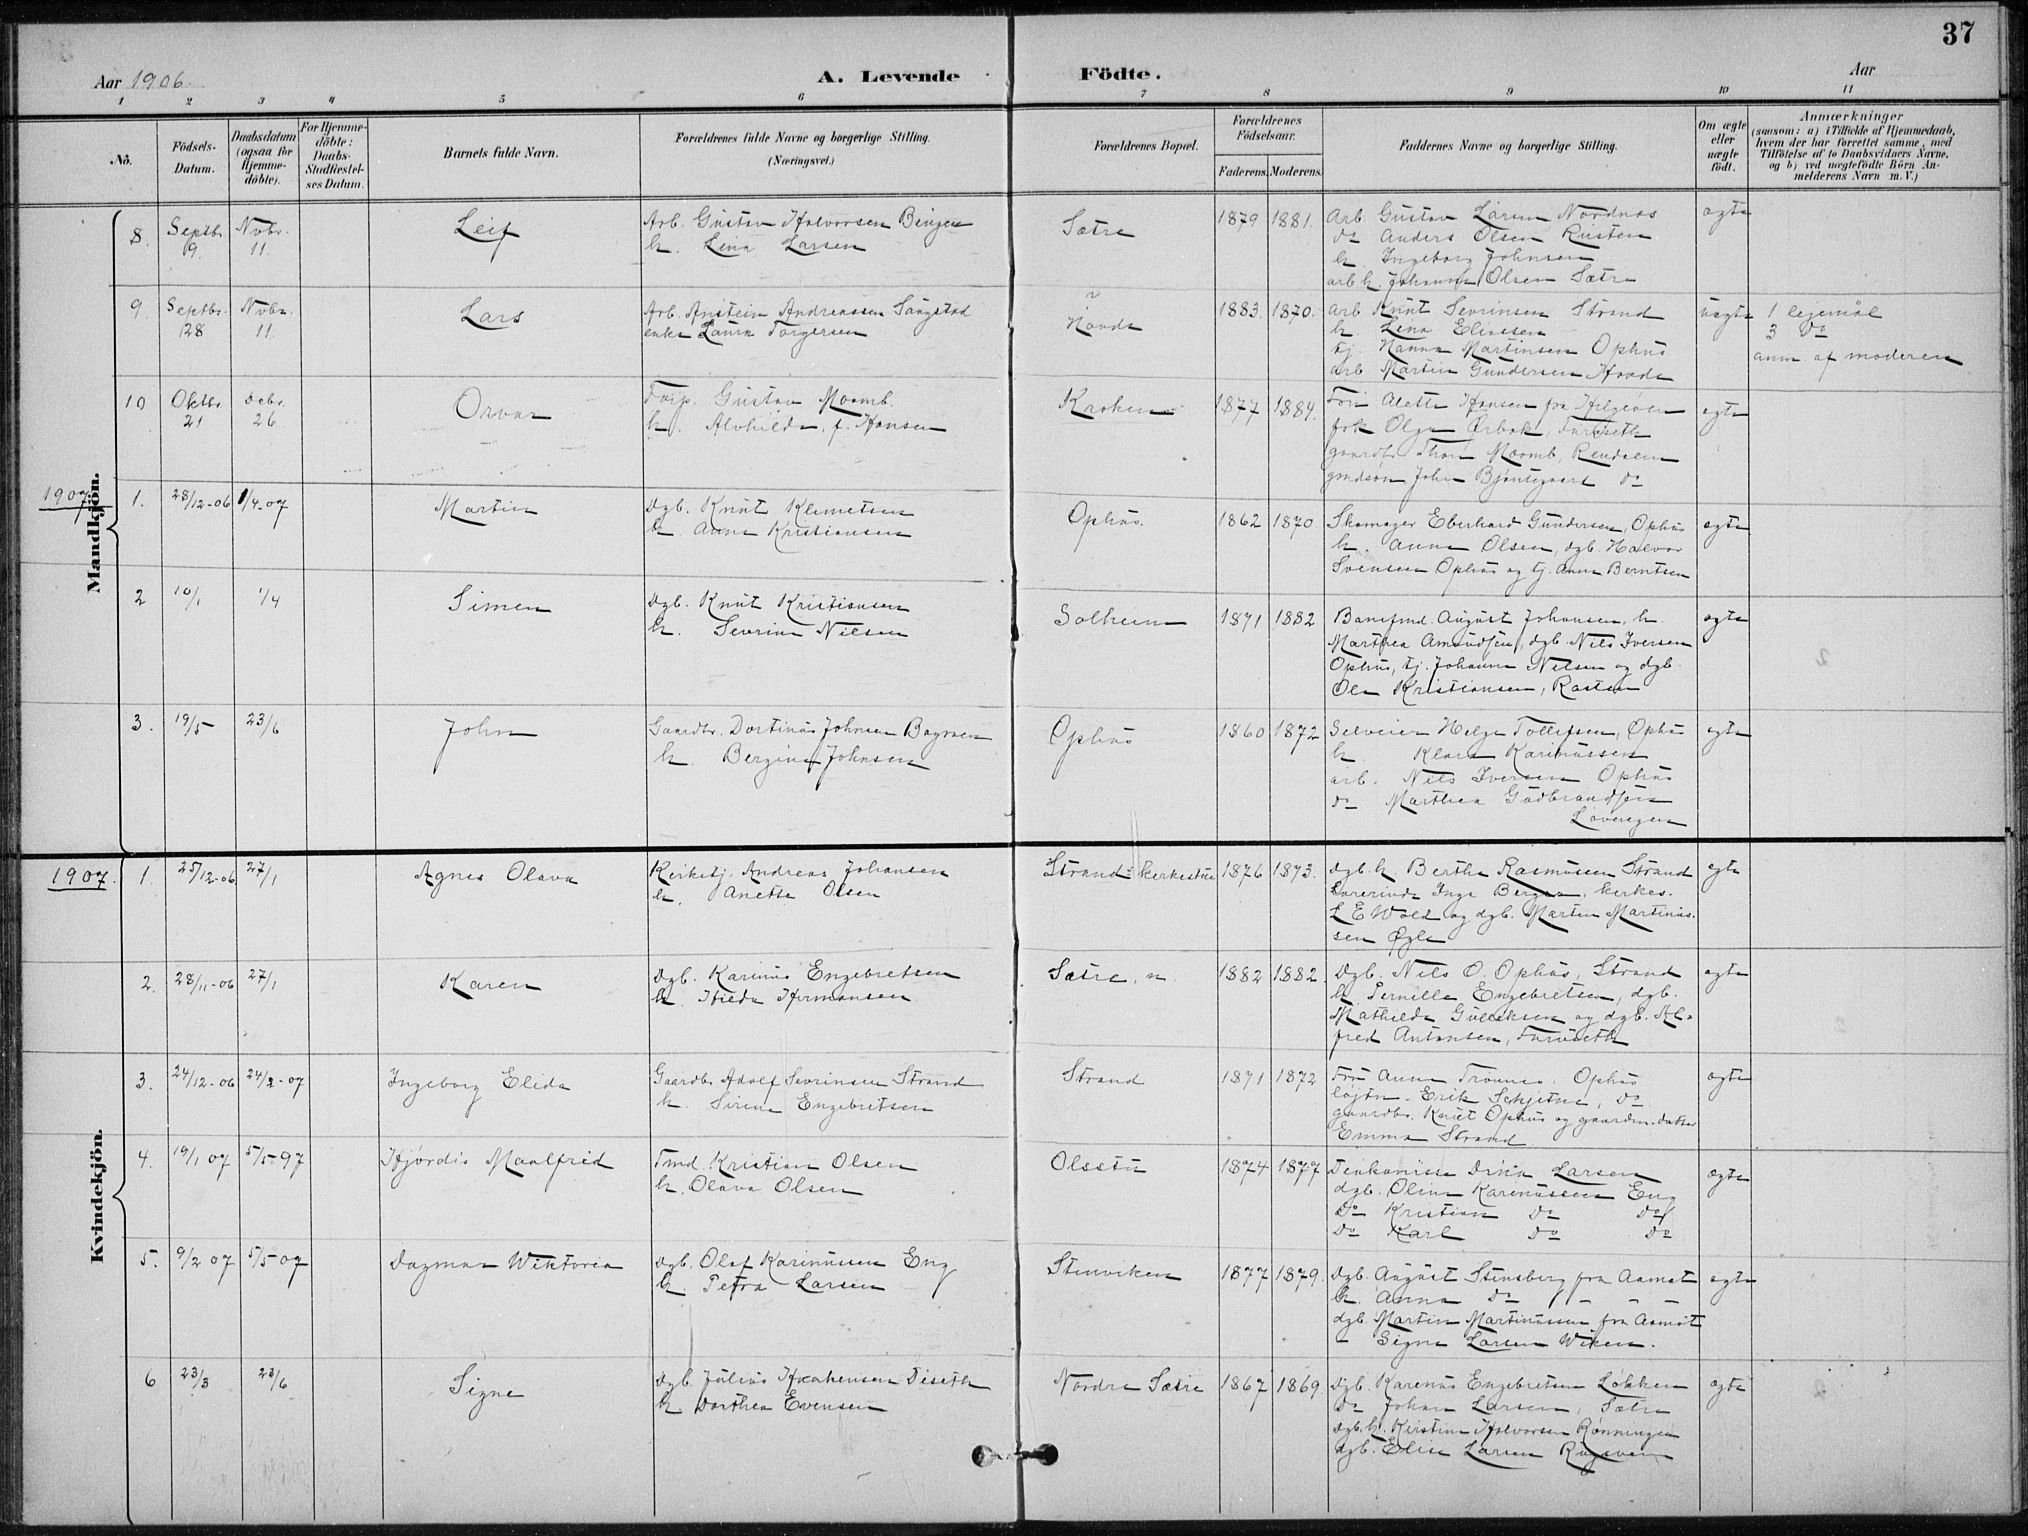 37
Aar 1906. A. Levende Födte. Aar
1 2 3 4 5 6 7 8 9 10 11
No.
Födsels-Datum.
Daabsdatum (ogsaa for Hjemme-döbte).
For Hjemme-döbte: Daabs-Stadfæstel-ses Datum.
Barnets fulde Navn.
Forældrenes fulde Navne og borgerlige Stilling.
(Næringsvei.)
Forældrenes Bopæl.
Forældrenes Födselsaar.
Faderens. Moderens.
Faddernes Navne og borgerlige Stilling.
Om ægte eller uægte födt.
Anmærkninger
(saasom: a) i Tilfælde af Hjemmedaab,
hvem der har forrettet samme, med
Tilföielse af to Daabsvidners Navne,
og b) ved uægtefödte Börn An-
melderens Navn m. V.)
Mandkjön.
8. Septbr. 9. Novbr. 11. Leif
Arb. Gustav Halvorsen Bingen
h. Lina Larsen
Sætre 1879 1881.
Arb Gustav Larsen Nordnes
do Anders Olsen Rusten
h. Ingeborg Johnsen
arb h. Johanna Olsen Sætre
ægte
9. Septbr. 28 Novbr. 11. Lars
Arb. Anstein Andreassen Saugstad
enke Laura Torgersen
Hovde 1883. 1870.
Arb Knut Sevrinsen Strand
h Lina Eliasen
tj. Hanna Martinsen Ophus
arb Martin Gundersen Hovde
uægte
1 lejemål
3 do
anm. af moderen
10 Oktbr. 21 Debr. 26 Orvar
Gustav Moomb.
h. Alvhilda, f. Hansen
Kroken 1877 1884.
Fru Aletta Hansen fra
frk Olga Ørbak, Furuseth
gaardbr Thore Moomb, Rendalen
gmdsøn John Bjøntegaard do
ægte
1907
1. 28/12-06 1/4-07 Martin
Dgb. Knut Klemetsen
h. Anna Kristiansen
Ophus. 1862 1870
Skomager Eberhard Gundersen, Ophus
h. Anna Olsen, dgb. Halvor
Svensen Ophus og tj. Anna Berntsen
ægte
2 10/1 1/4 Simen
Dgb. Knut Kristiansen
h. Sevrine Nielsen
Solheim 1871 1882
Banefmd. August Johansen, h
Marthea Amundsen, dgb. Nils Iversen
Ophus, tj. Johanna Nilsen og dgb.
Ole Kristiansen, Rasten
ægte
3. 19/5 23/6 John
Gaardbr. Dortinus Johnsen
h. Bergine Johnsen
Ophus 1860 1872
Selveier Helge Tollefsen, Ophus
h. Klara Karinussen
arb. Nils Iversen Ophus
do Marthea Gudbrandsen
Løvengen
ægte
Kvindekjön.
1907.
1. 25/12-06 27/1 Agnes Olava
Kirketj. Andreas Johansen
h. Anette Olsen
Strand kirkestue 1876 1873.
dgb. h Berthe Rasmussen Strand
Lærerinde Inga Berger, kirkes.
L E Wold og dgb. Martin Martinus-
sen Øgle
ægte
2. 28/11-06 27/1 Karen
Dgb. Karinus Engebretsen
h. Hilda Hermansen
Sætre, n. 1882 1882.
Dgb. Nils O. Ophus, Strand
h. Pernille Engebretsen, dgb.
Mathilde Gulliksen og dgb. Al-
fred Antonsen, Furuseth
ægte
3. 24/12-06 24/2-07 Ingeborg Elida
Gaardbr. Adolf Sevrinsen Strand
h. Sirene Engebretsen
Strand 1871 1872
Fru Anna Trønnes, Ophus
løjtn. Erik Schjetne, do
gaardbr. Knut Ophus og gaardm. datter
Emma Strand
ægte
4. 19/1 07 5/5-97 Hjørdis Maalfrid
Tmd. Kristian Olsen
h. Olava Olsen
Olsstu 1874 1877
Diakonisse Dina Larsen
dgb. Oline Karenussen Eng
Do Kristian do do
Do Karl do do
ægte
5. 9/2 07 5/5-07 Dagmar Wiktoria
dgb. Olaf Karinussen Eng
h Petra Larsen
Stenviken 1877 1879.
Dgb. August Stensberg fra Aamot
h. Anna do - - -
dgb. Martin Martinussen fra Aamot
- Signe Larsen Wiken.
ægte
6 23/3 23/6 Signe
Dgb. Julius Haakensen Diseth
h. Dorthea Evensen
Nordre Sætre 1867 1869.
Dgb. Karenus Engebretsen Løkken
Do Johan Larsen, Sætre
dgb. h. Kirstine Halvorsen Rønningen
dgb. Elise Larsen
ægte